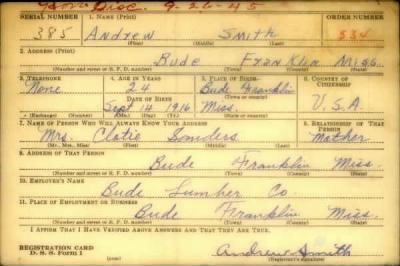 Hon Disc. 9-26-45
SERIAL NUMBER 1. NAME (Print) ORDER NUMBER
385 Andrew Smith 534
(First) (Middle) (Last)
2. ADDRESS (Print)
Bude Franklin Miss.
(Number and street or R. F. D. number) (Town) (County) (State)
3. TELEPHONE 4. AGE IN YEARS 5. PLACE OF BIRTH 6. COUNTRY OF CITIZENSHIP
None 24 Bude Franklin U.S.A
DATE OF BIRTH (Town or county)
Sept 14 1916 Miss.
(Exchange) (Number) (Mo.) (Day) (Yr.) (State or country)
7. NAME OF PERSON WHO WILL ALWAYS KNOW YOUR ADDRESS 8. RELATIONSHIP OF THAT PERSON
Mrs. Clatie Sanders Mother
(Mr., Mrs., Miss) (First) (Middle) (Last)
9. ADDRESS OF THAT PERSON
Bude Franklin Miss.
(Number and street or R. F. D. number) (Town) (County) (State)
10. EMPLOYER'S NAME
Bude Lumber Co.
11. PLACE OF EMPLOYMENT OR BUSINESS
Bude Franklin Miss.
(Number and street or R. F. D. number) (Town) (County) (State)
I AFFIRM THAT I HAVE VERIFIED ABOVE ANSWERS AND THAT THEY ARE TRUE.
REGISTRATION CARD
D. S. S. Form 1
Andrew Smith